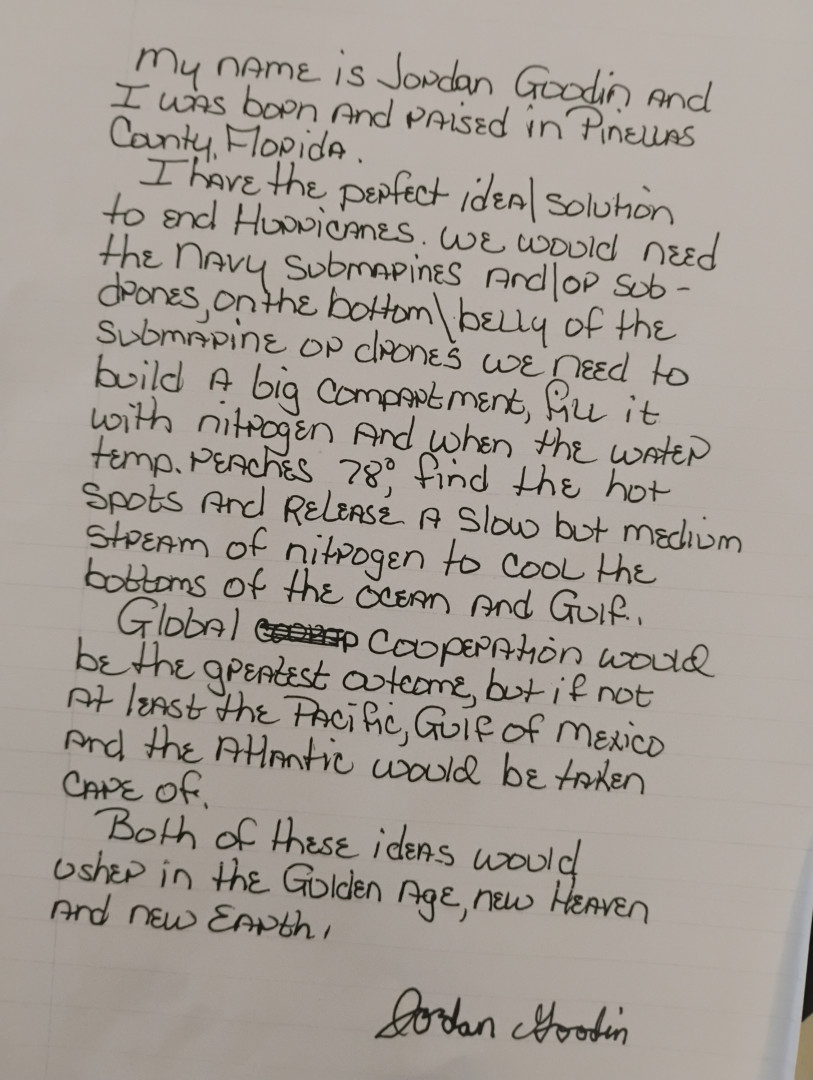 My name is Jordan Goodin and
I was born and raised in Pinellas
County, Florida.
I have the perfect ideal solution
to end Hurricanes. We would need
the Navy submarines and/or sub-
drones, on the bottom\belly of the
submarine or drones we need to
build a big compartment, fill it
with nitrogen and when the water
temp. reaches 78°, find the hot
spots and Release a slow but medium
stream of nitrogen to cool the
bottoms of the ocean and Gulf.
Global cooperation would
be the greatest outcome, but if not
at least the Pacific, Gulf of Mexico
and the Atlantic would be taken
care of.
Both of these ideas would
usher in the Golden Age, new Heaven
and new Earth.
Jordan Goodin